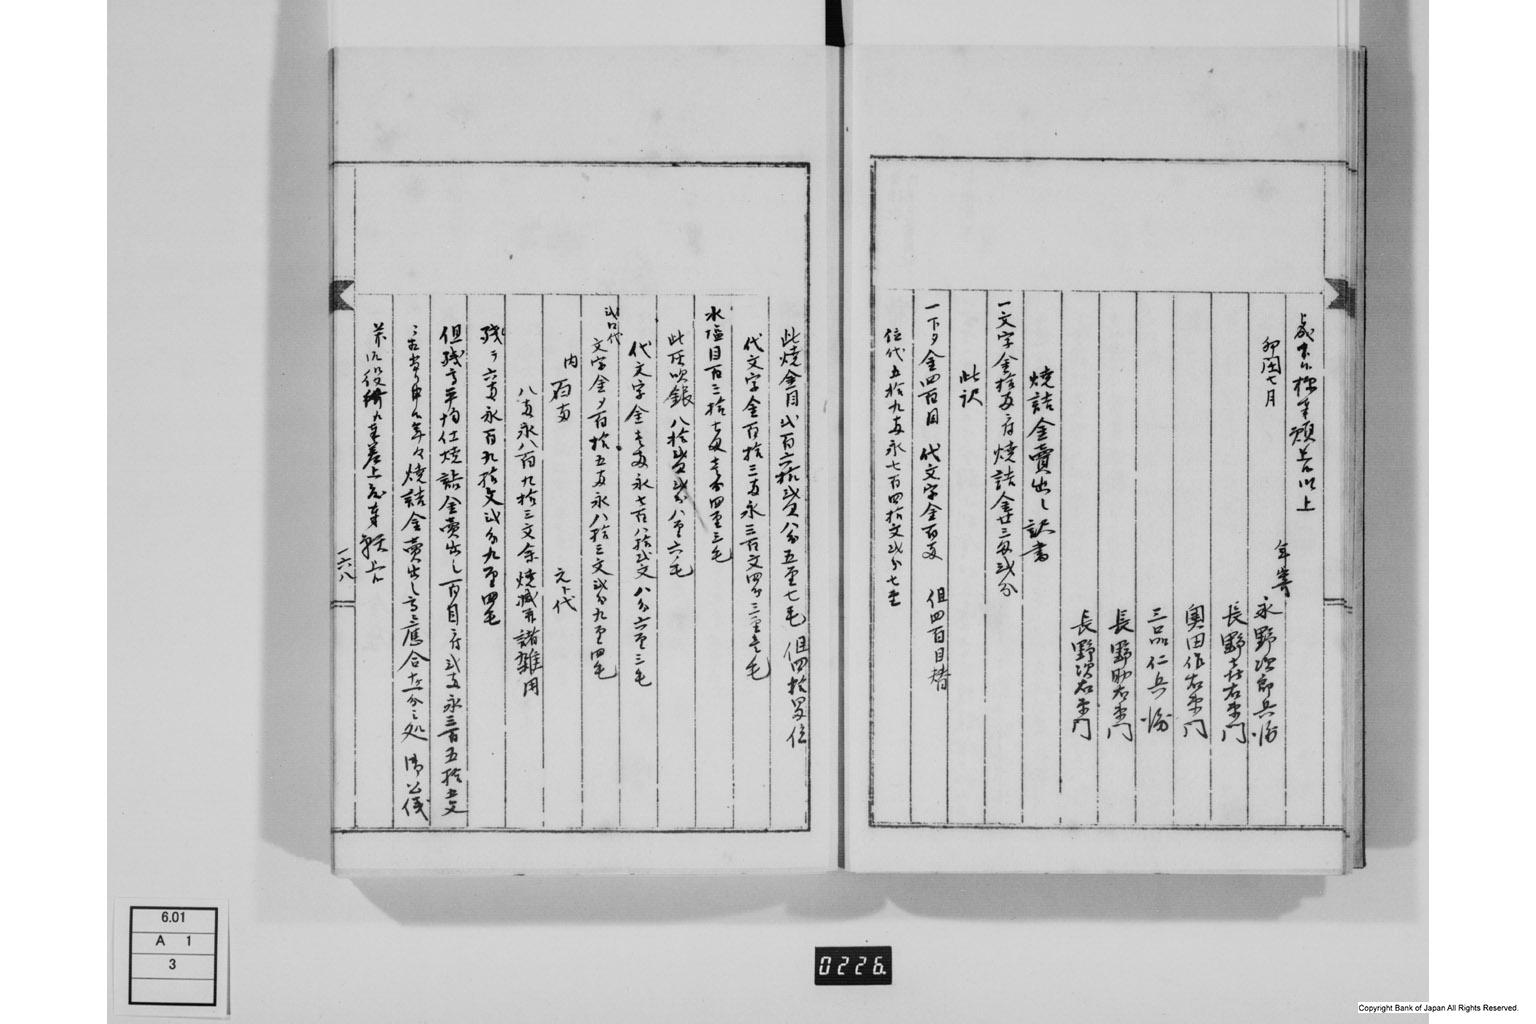 卯閏七月
年寄
永野次郎兵衛
長野吉右衛門
奥田作右衛門
三品仁兵衛
長野助右衛門
長野次右衛門
焼詰金賣出し訳書
一文字金拾両ニ付焼詰金廿三匁弐分
此訳
一下夕金四百目 代文字金百両 但四百目替
位代五拾九両永七百四拾文弐分七厘
此焼金目弐百六拾弐匁八分五厘七毛 但四拾四匁位
代文字金百拾三両永三百文四分三厘七毛
水塩目百三拾七匁壱分四厘三毛
此灰吹銀八拾弐匁弐分八厘六毛
代文字金壱両永七百八拾弐文八分六厘三毛
弐口代
文字金〆百拾五両永八拾三文弐分九厘四毛
内
百両 元下代
八両永八百九拾三文余焼減并諸雑用
残テ六両永百九拾文弐分九厘四毛
但残高平均仕焼詰金賣出し百目ニ付弐両永三百五拾五文
年々焼詰金賣出し高ニ應 合十五分之処 御公儀
一六八
6.01
A 1
3
0226.
Copyright Bank of Japan All Rights Reserved.